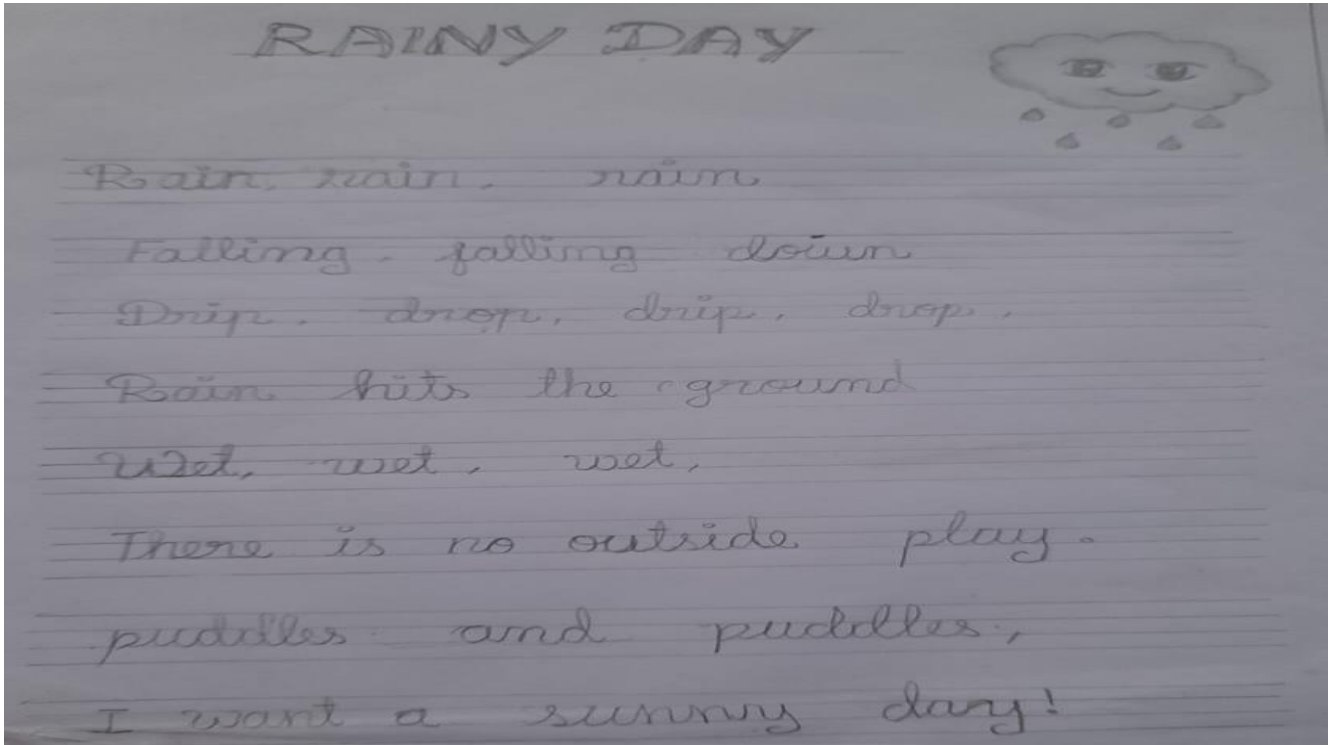 RAINY DAY
Rain, rain, rain
Falling, falling down
Drip, drop, drip, drop,
Rain hits the ground
Wet, wet, wet,
There is no outside play.
puddles and puddles,
I want a sunny day!